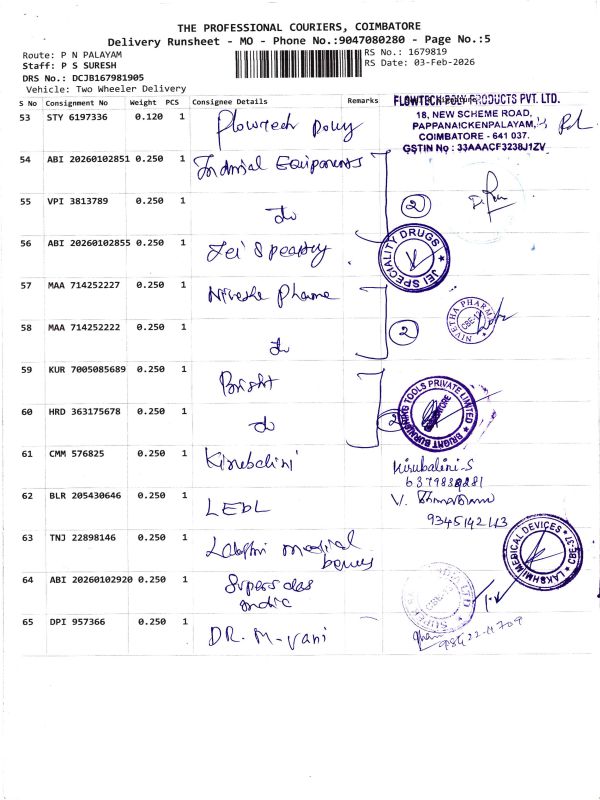 THE PROFESSIONAL COURIERS, COIMBATORE
Delivery Runsheet - MO - Phone No.:9047080280 - Page No.:5
Route: P N PALAYAM
RS No.: 1679819
Staff: P S SURESH
RS Date: 03-Feb-2026
DRS No.: DCJB167981905
Vehicle: Two Wheeler Delivery
S No Consignment No Weight PCS Consignee Details Remarks
FLOWTECH POLY PRODUCTS PVT. LTD.
18, NEW SCHEME ROAD,
PAPPANAICKENPALAYAM,
COIMBATORE - 641 037.
GSTIN No : 33AAACF3238J1ZV
53 STY 6197336 0.120 1 Flowtech Poly
54 ABI 20260102851 0.250 1 Indusrial Equipments
55 VPI 3813789 0.250 1 do
2
56 ABI 20260102855 0.250 1 Jei Speacity
JEI SPECIALITY DRUGS
57 MAA 714252227 0.250 1 Nivethe Pharma
58 MAA 714252222 0.250 1 do
2
NIVETHA PHARMA
59 KUR 7005085689 0.250 1 Bright
60 HRD 363175678 0.250 1 do
2
BRIGHT BURNISHING TOOLS PRIVATE LIMITED
61 CMM 576825 0.250 1 Kirubalini
Kirubalini-S
62 BLR 205430646 0.250 1 LEDL
V.
9345142113
63 TNJ 22898146 0.250 1 Lakshmi medical
LAKSHMI MEDICAL DEVICES CBE-37
64 ABI 20260102920 0.250 1 Supers
65 DPI 957366 0.250 1 DR. M-vani